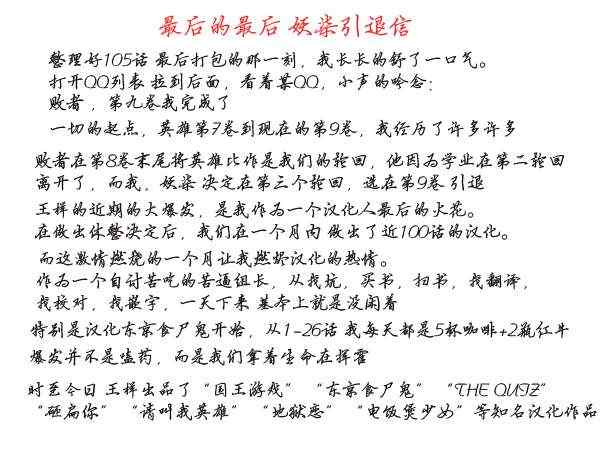 最后的最后 妖柒引退信
整理好105话 最后打包的那一刻，我长长的舒了一口气。
打开QQ列表 拉到后面，看着某QQ，小声的呤念：
败者，第九卷我完成了
一切的起点，英雄第7卷到现在的第9卷，我经历了许多许多
败者在第8卷末尾将英雄比作是我们的轮回，他因为学业在第二轮回
离开了，而我，妖柒 决定在第三个轮回，选在第9卷 引退
王样的近期的大爆发，是我作为一个汉化人最后的火花。
在做出休整决定后，我们在一个月内 做出了近100话的汉化。
而这激情燃烧的一个月让我燃烬汉化的热情。
作为一个自讨苦吃的苦逼组长，从找坑，买书，扫书，找翻译，
找校对，找嵌字，一天下来 基本上就是没闲着
特别是汉化东京食尸鬼开始，从1-26话 我每天都是5杯咖啡+2瓶红牛
爆发并不是嗑药，而是我们拿着生命在挥霍
时至今日 王样出品了“国王游戏” “东京食尸鬼” “THE QUIZ”
“砸扁你” “请叫我英雄” “地狱恋” “电饭煲少女”等知名汉化作品